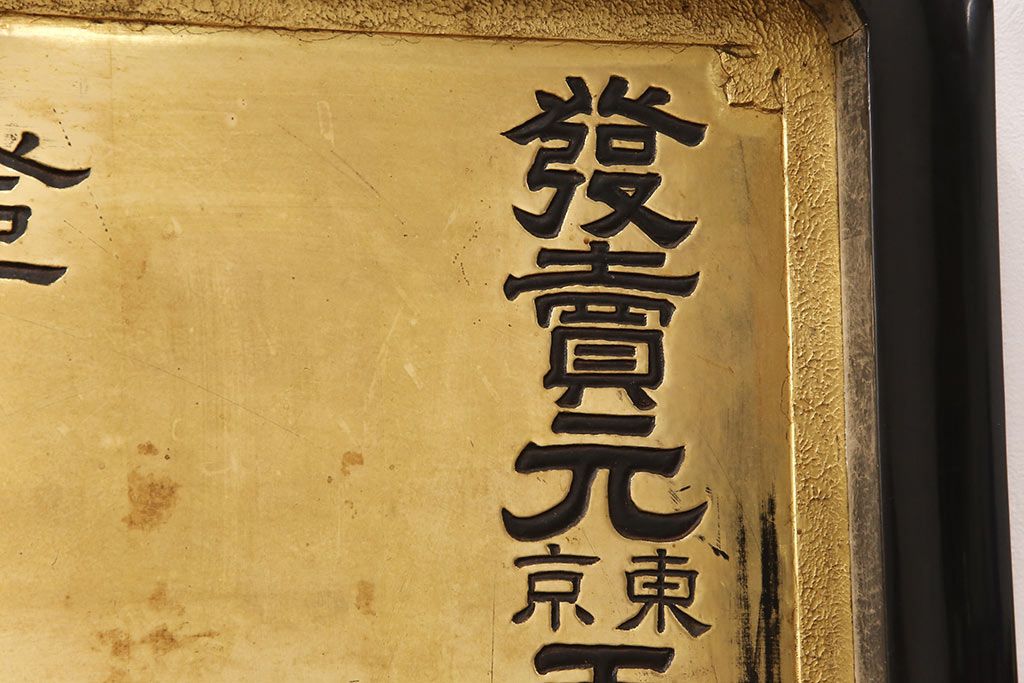 發賣元
東京